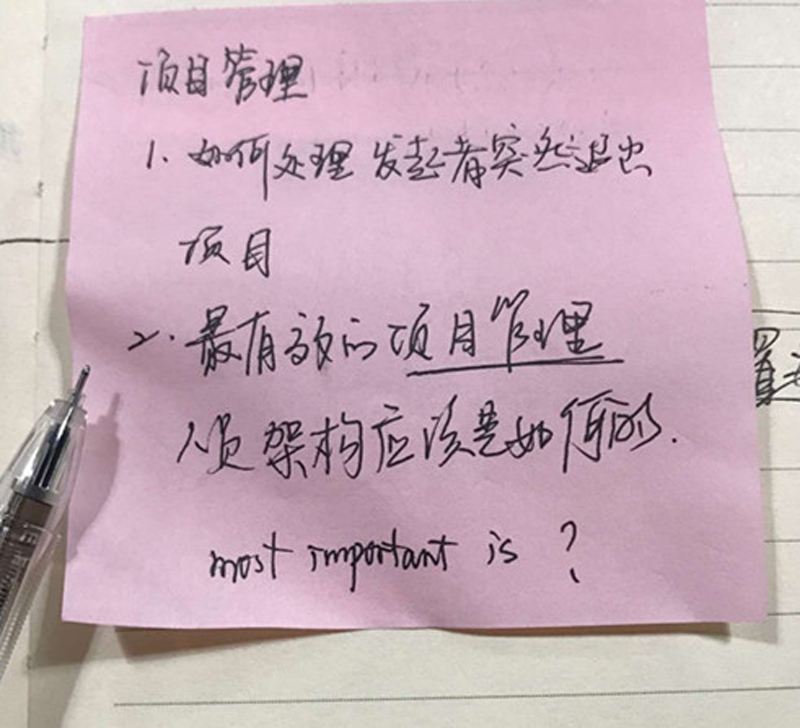 项目管理
1. 如何处理发起者突然退出
项目
2. 最有效的项目管理
人员架构应该是如何的.
most important is ?
置